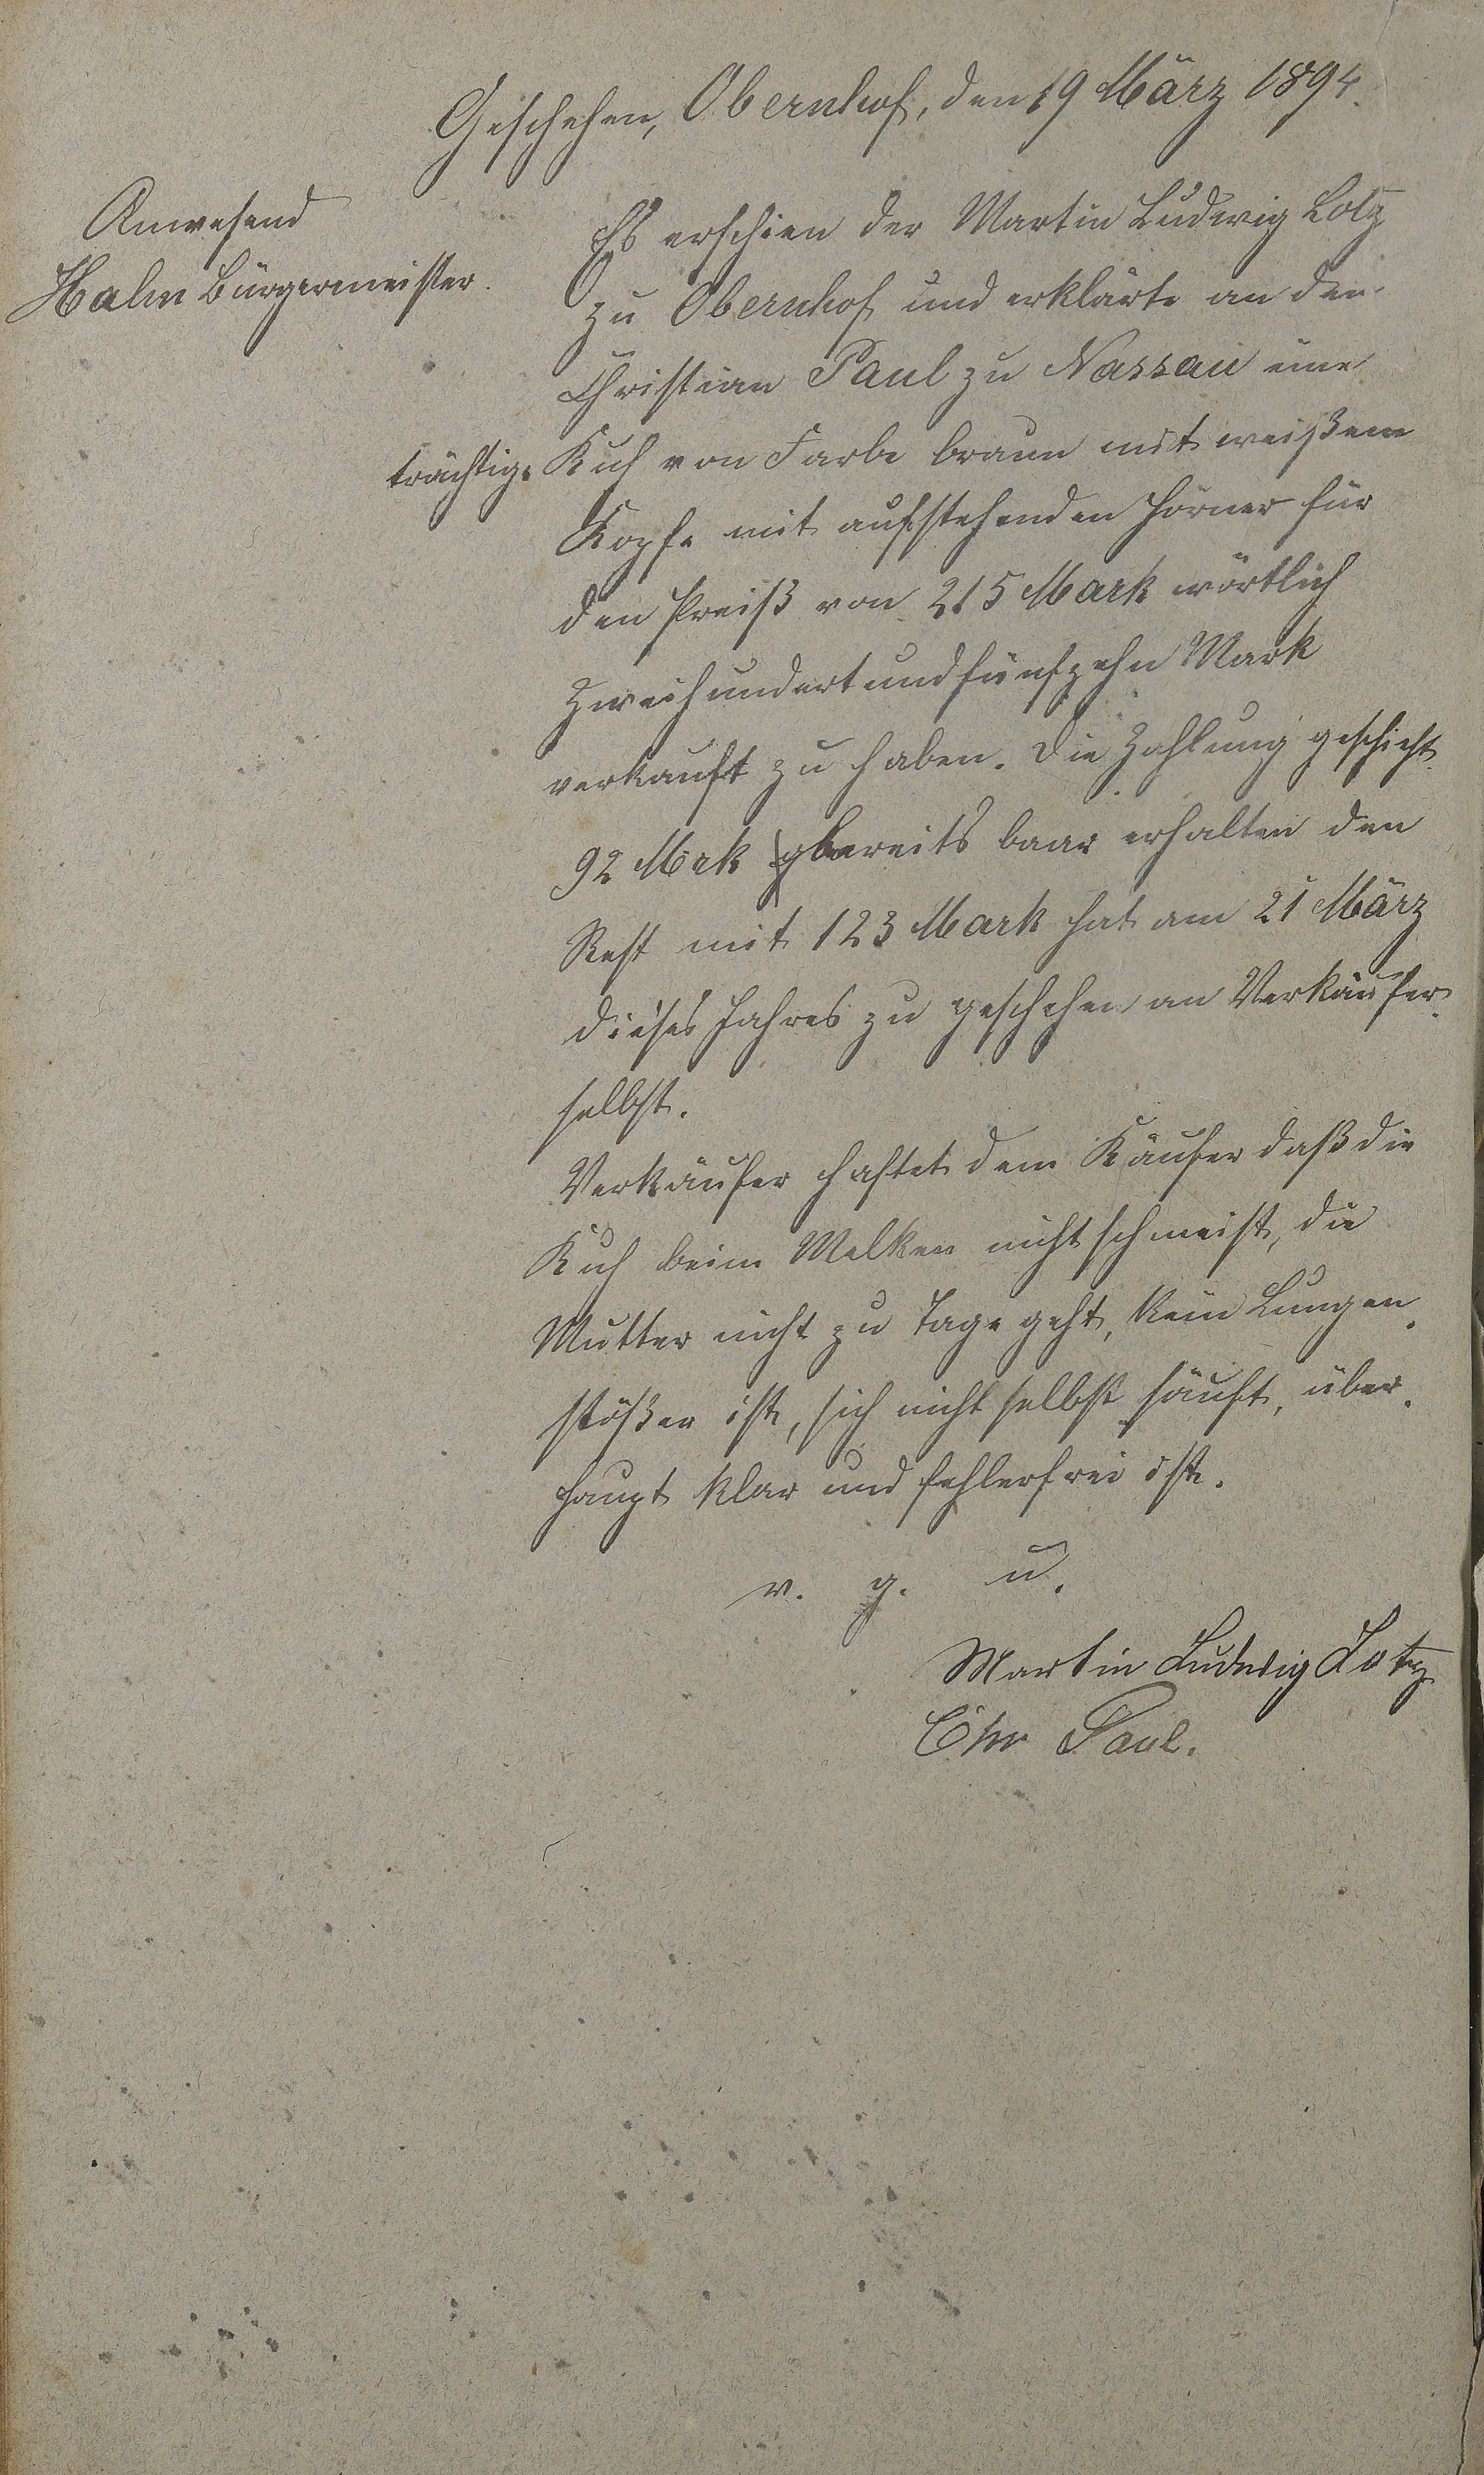 Geschehen, Obernhof, den 19 März 1894.
Anwesend
Halm Bürgermeister.
Es erschien der Martin Ludwig Lotz
zu Obernhof und erklärte an den
Christian Paul zu Nassau eine
trächtige Kuh von Farbe braun mit weißem
Kopfe mit aufstehenden Hörner für
den Preiß von 215 Mark wörtlich
Zweihundertundfünfzehn Mark
verkauft zu haben. Die Zahlung geschieht
92 Mark bereits baar erhalten den
Rest mit 123 Mark hat am 21 März
dieses Jahres zu geschehen an Verkäufer
selbst.
Verkäufer haftet dem Käufer daß die
Kuh beim Melken nicht schmeist, die
Mutter nicht zu Tage geht, kein Lungen
stößer ist, sich nicht selbst säuft, über
haupt klar und fehlerfrei ist.
v. g. u.
Martin Ludwig Lotz
Chr Paul.